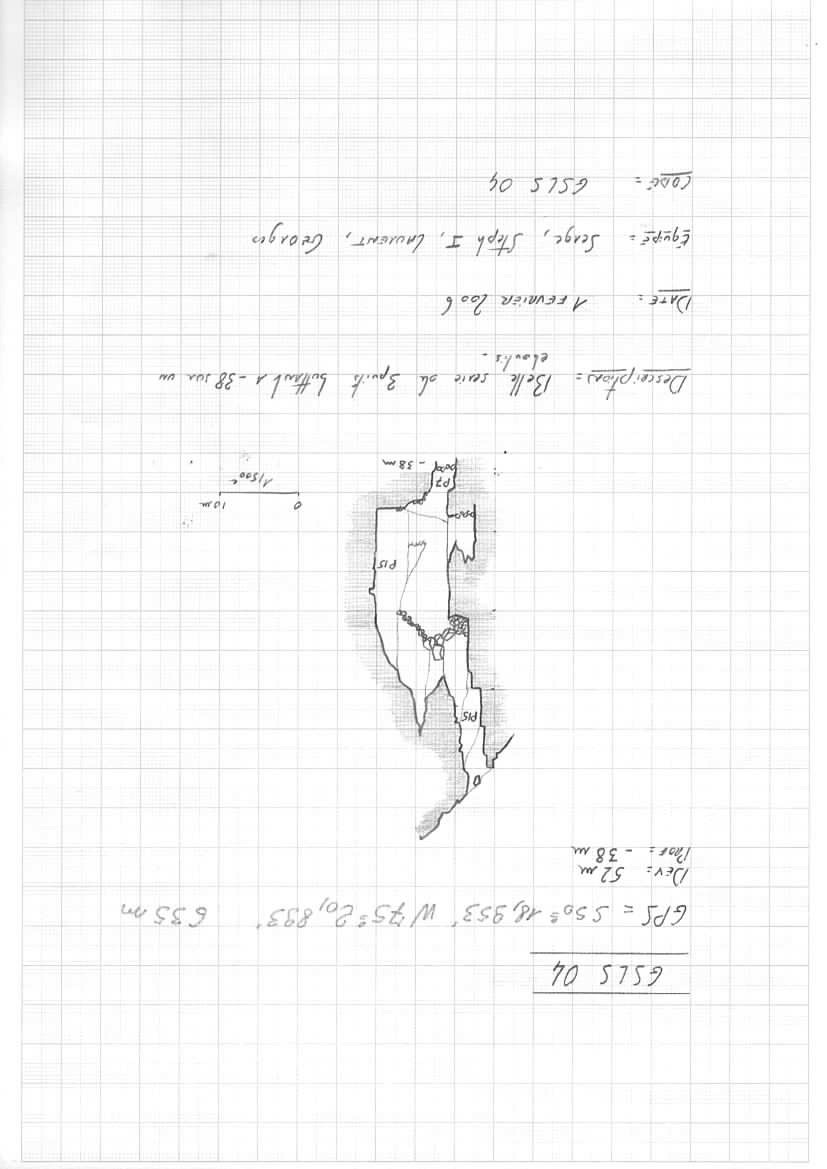 GSLS 04
GPS = S 50° 18,953' W 75° 20,893' 635 m
DEV = 52 m
PROF = - 38 m
0
P15
P15
P7
- 38 m
0 10 m
1/500e
DESCRIPTION = Belle serie de 3 puits buttant à - 38 sur un
eboulis.
DATE = 1 FEVRIER 2006
EQUIPE = SERGE, STEPH I, LAURENT, GEORGES
CODE = GSLS 04